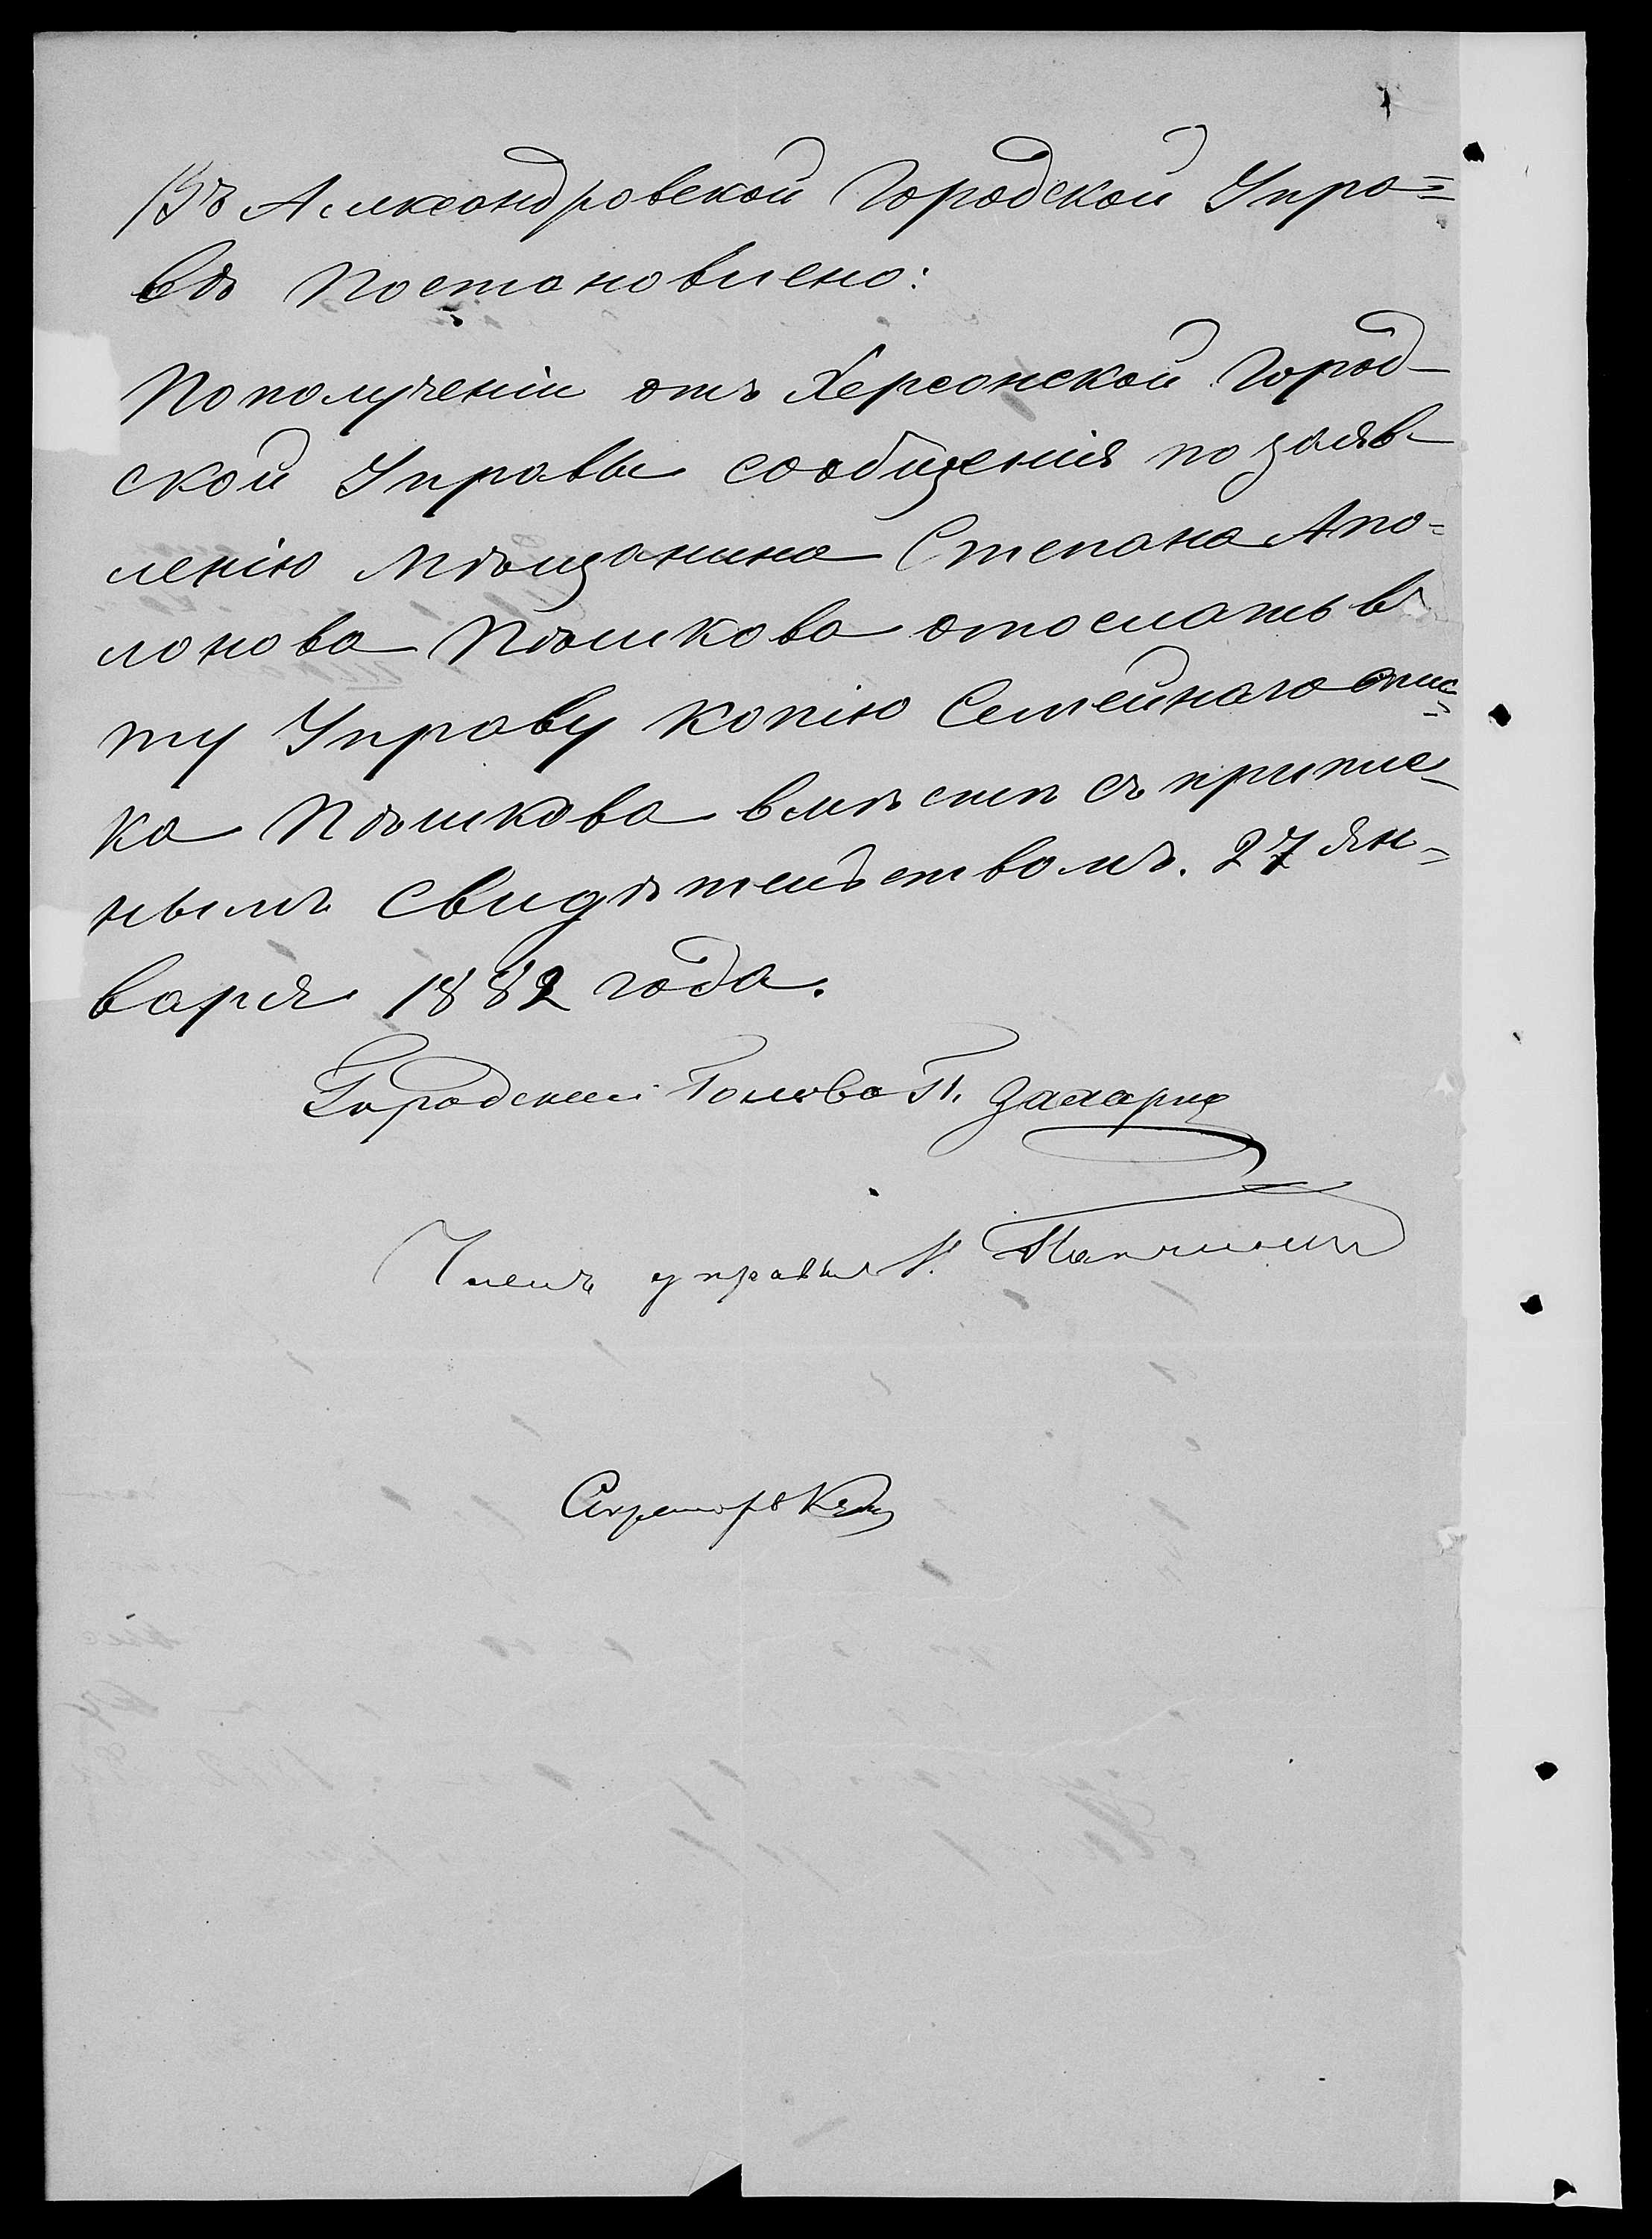 Въ Александровской Городской Упра=
вѣ Постановлено:
По полученіи отъ Херсонской Город-
ской Управы сообщенія по заяв-
ленію Мѣщанина Степана Апо=
лонова Пѣшкова отослать в
ту Управу копію Семейнаго спис=
ка Пѣшкова вмѣстѣ съ припис-
нымъ свидѣтельствомъ. 27 Ян=
варя 1882 года.
Городской Голова П. Захарин
Членъ управы
Секретарь